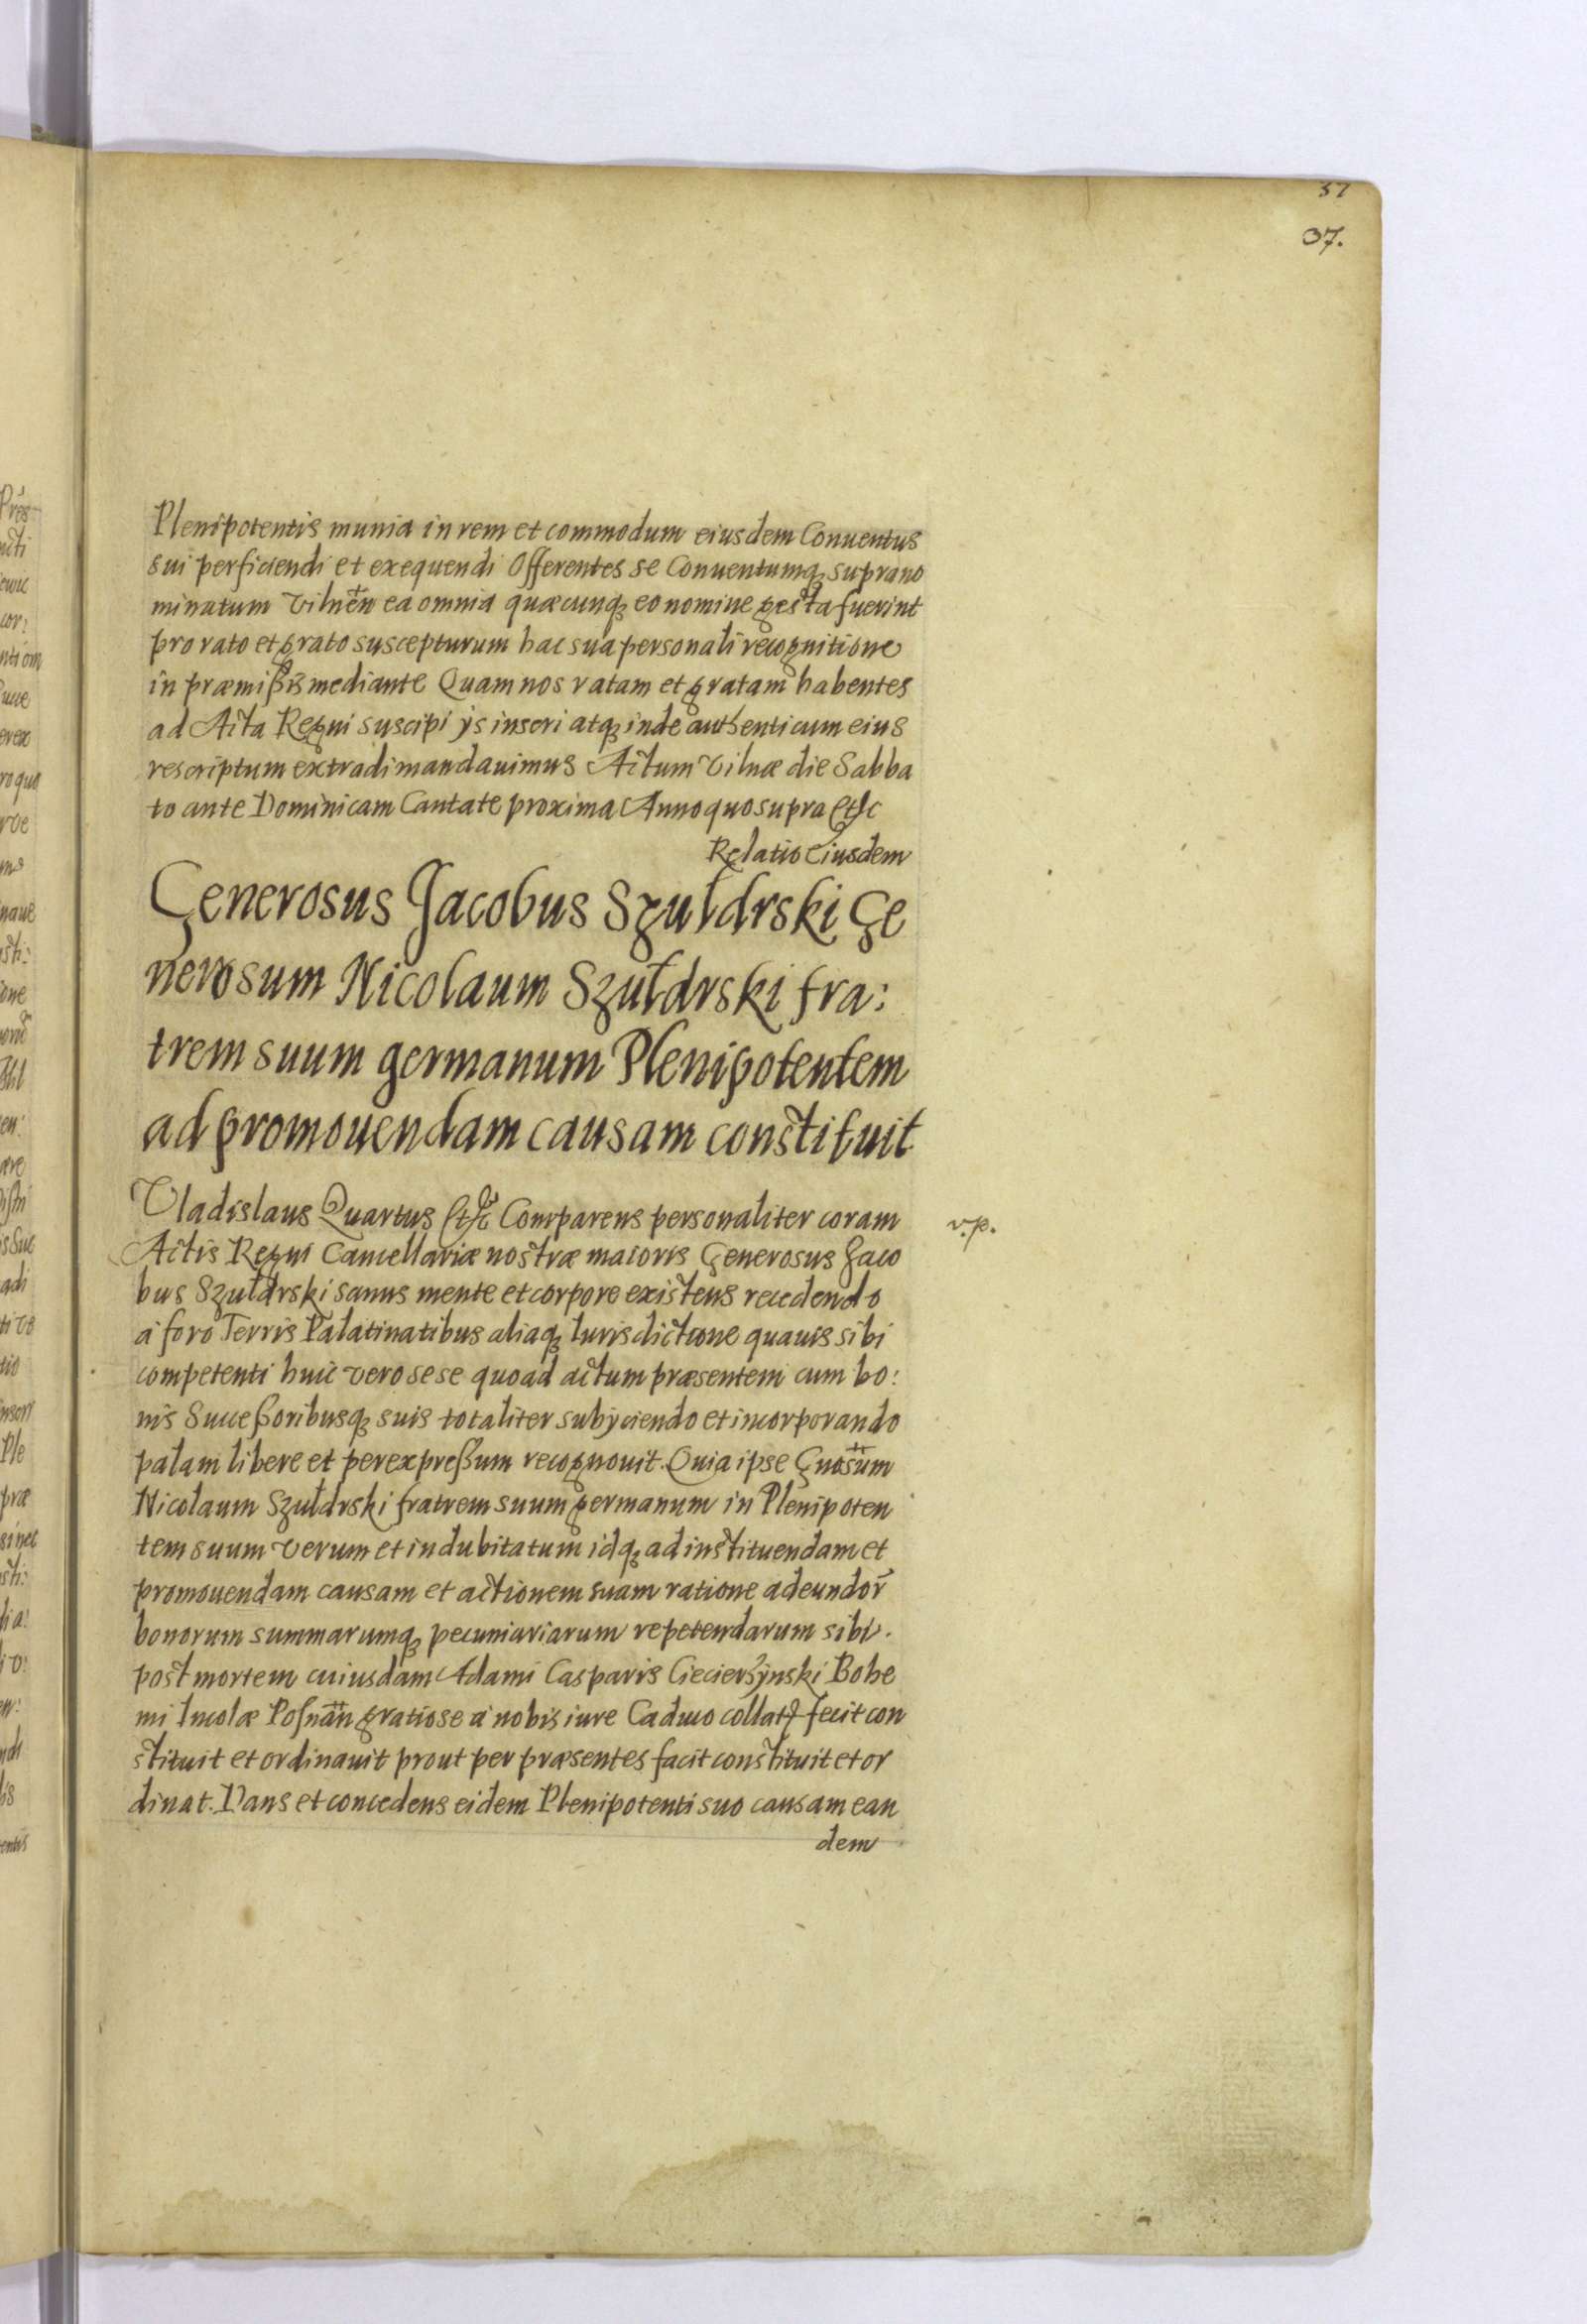 57
37.
Plenipotentis munia in rem et commodum eiusdem Conuentus
sui perficiendi et exequendi Offerentes se Conuentumq suprano
minatum Vilnen ea omnia quæcunq eo nomine gesta fuerint
pro rato et grato suscepturum hac sua personali recognitione
in præmißis mediante Quam nos ratam et gratam habentes
ad Acta Regni suscipi ijs inseri atq inde authenticum eius
rescriptum extradi mandauimus Actum Vilnæ die Sabba
to ante Dominicam Cantate proxima Anno quo supra Etc
Relatio Eiusdem
Generosus Jacobus Szułdrski Ge
nerosum Nicolaum Szułdrski fra:
trem suum germanum Plenipotentem
ad promouendam causam constituit
Vladislaus Quartus Etc Comparens personaliter coram
v.p.
Actis Regni Cancellariæ nostræ maioris Generosus Jaco
bus Szułdrski sanus mente et corpore existens recedendo
à foro Terris Palatinatibus aliaq Iurisdictione quauis sibi
competenti huic vero sese quoad actum præsentem cum bo:
nis Succeßoribusq suis totaliter subijciendo et incorporando
palam libere et per expreßum recognouit. Quia ipse Gnosum
Nicolaum Szułdrski fratrem suum germanum in Plenipoten
tem suum verum et indubitatum idq ad instituendam et
promouendam causam et actionem suam ratione adeundor
bonorum summarumq pecuniariarum repetendarum sibi
post mortem cuiusdam Adami Casparis Bohe
mi Incolæ Posnan gratiose à nobis iure Caduco collat fecit con
stituit et ordinauit prout per præsentes facit constituit et or
dinat. Dans et concedens eidem Plenipotenti suo causam ean
dem